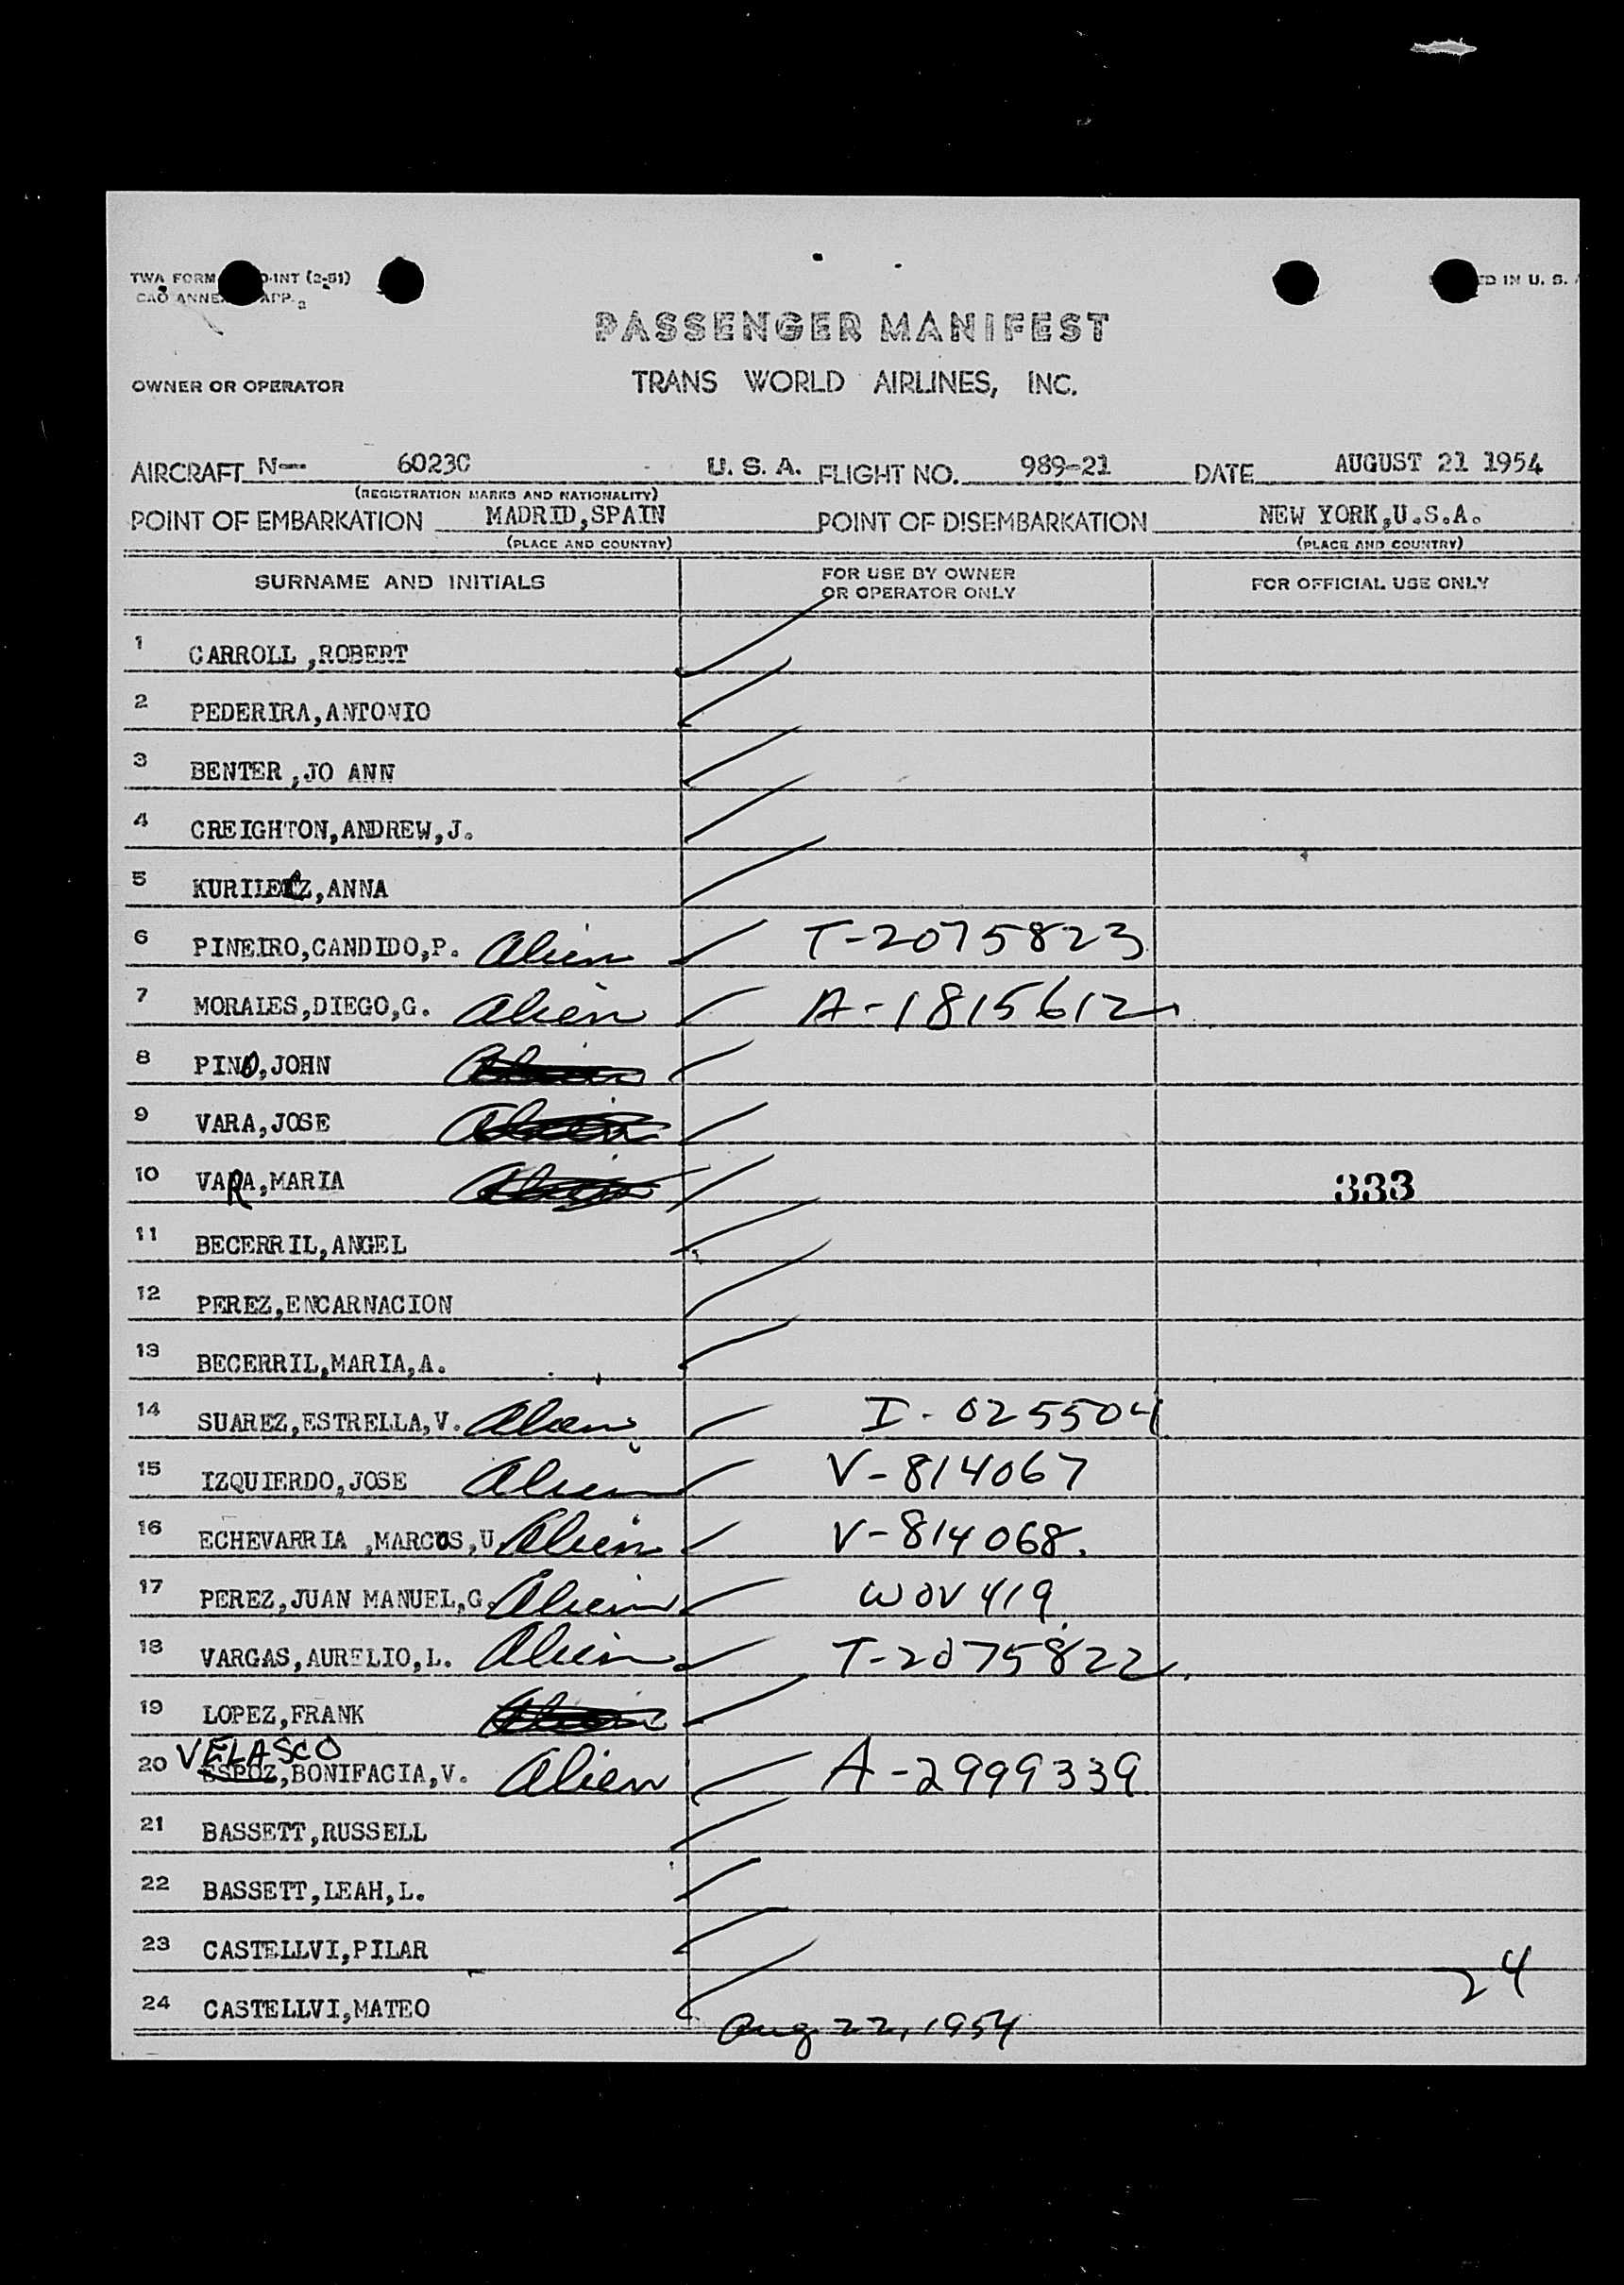 TWA FORM INT (2-51)
CAO ANNEX APP. 2
D IN U. S. A
PASSENGER MANIFEST
OWNER OR OPERATOR TRANS WORLD AIRLINES, INC.
AIRCRAFT N-- 6023C U. S. A. FLIGHT NO. 989-21 DATE AUGUST 21 1954
(REGISTRATION MARKS AND NATIONALITY)
POINT OF EMBARKATION MADRID,SPAIN POINT OF DISEMBARKATION NEW YORK,U.S.A.
(PLACE AND COUNTRY) (PLACE AND COUNTRY)
SURNAME AND INITIALS FOR USE BY OWNER OR OPERATOR ONLY FOR OFFICIAL USE ONLY
1 CARROLL ,ROBERT
2 PEDERIRA,ANTONIO
3 BENTER ,JO ANN
4 CREIGHTON,ANDREW,J.
5 KURILETZ,ANNA
6 PINEIRO,CANDIDO,P. Alien T-2075823
7 MORALES,DIEGO,G. Alien A-1815612
8 PINO,JOHN Alien
9 VARA,JOSE Alien
10 VARA,MARIA Alien 333
11 BECERRIL,ANGEL
12 PEREZ,ENCARNACION
13 BECERRIL,MARIA,A.
14 SUAREZ,ESTRELLA,V. Alien I-025504
15 IZQUIERDO,JOSE Alien V-814067
16 ECHEVARRIA ,MARCOS,U. Alien V-814068.
17 PEREZ,JUAN MANUEL,G. Alien WOV 419
18 VARGAS,AURELIO,L. Alien T-2075822
19 LOPEZ,FRANK Alien
VELASCO
20 ESPOZ,BONIFACIA,V. Alien A-2999339
21 BASSETT,RUSSELL
22 BASSETT,LEAH,L.
23 CASTELLVI,PILAR
24
24 CASTELLVI,MATEO
Aug 22, 1954